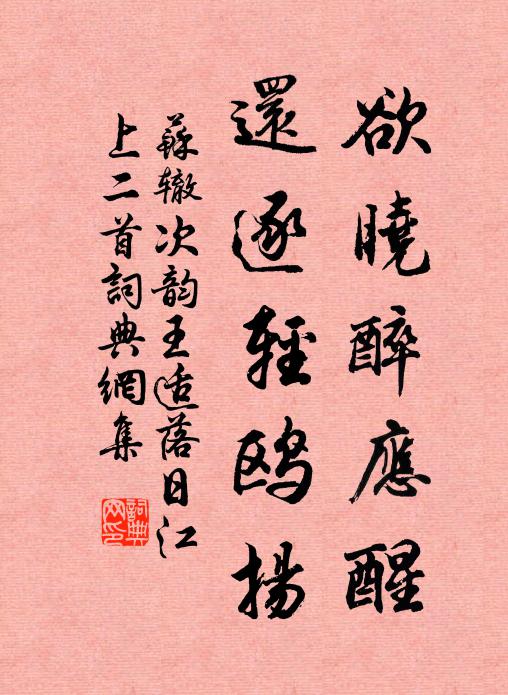 欲曉醉應醒
還逐輕鸥揚
蘇辙次韵王适落日江
上二首詞典網集
詞典
网印